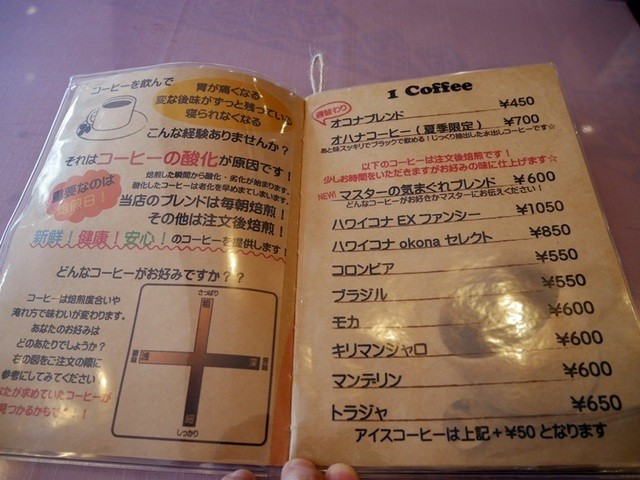 コーヒーを飲んで
胃が痛くなる
変な後味がずっと残っている
寝られなくなる
こんな経験ありませんか？
それはコーヒーの酸化が原因です！
焙煎した瞬間から酸化・劣化が始まります。
酸化したコーヒーは老化を早めてしまいます。
重要なのは
焙煎日！
当店のブレンドは毎朝焙煎！
その他は注文後焙煎！
新鮮！健康！安心！のコーヒーを提供します！
どんなコーヒーがお好みですか？？
コーヒーは焙煎度合いや
淹れ方で味わいが変わります。
あなたのお好みは
どのあたりでしょうか？
その図をご注文の際に
参考にしてみてください
なたが求めていたコーヒーが
見つかるかも！！
さっぱり
しっかり
1 Coffee
日替わり
オコナブレンド ¥450
オハナコーヒー（夏季限定） ¥700
あと味スッキリでブラックで飲める！じっくり抽出した水出しコーヒーです☆
以下のコーヒーは注文後焙煎です！
少しお時間をいただきますがお好みの味に仕上げます☆
NEW! マスターの気まぐれブレンド ¥600
どんなコーヒーがお好きかマスターにお伝えください！
ハワイコナ EX ファンシー ¥1050
ハワイコナ okona セレクト ¥850
コロンビア ¥550
ブラジル ¥550
モカ ¥600
キリマンジャロ ¥600
マンデリン ¥600
トラジャ ¥650
アイスコーヒーは上記＋¥50 となります